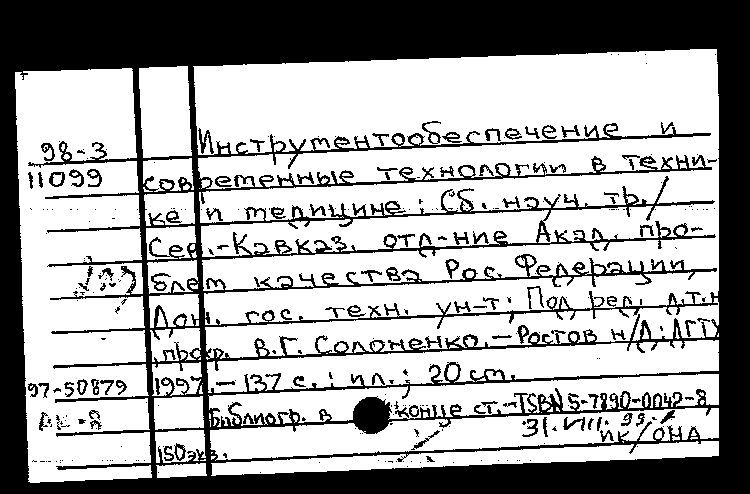 98-3 Инструментообеспечение и
11099 современные технологии в техни-
ке и медицине: Сб. науч. тр. /
Сев.-Кавказ. отд-ние Акад. про-
блем качества Рос. Федерации,
Дон. гос. техн. ун-т; Под ред. д.т.н
, проф. В.Г. Солоненко.-Ростов н/Д: ДГТУ
97-50879 1997.- 137 с.: ил.; 20 см.
Библиогр. в конце ст.-ISBN 5-7890-0042-8,
31.VIII.99.
150 экз. ПК/ОНД